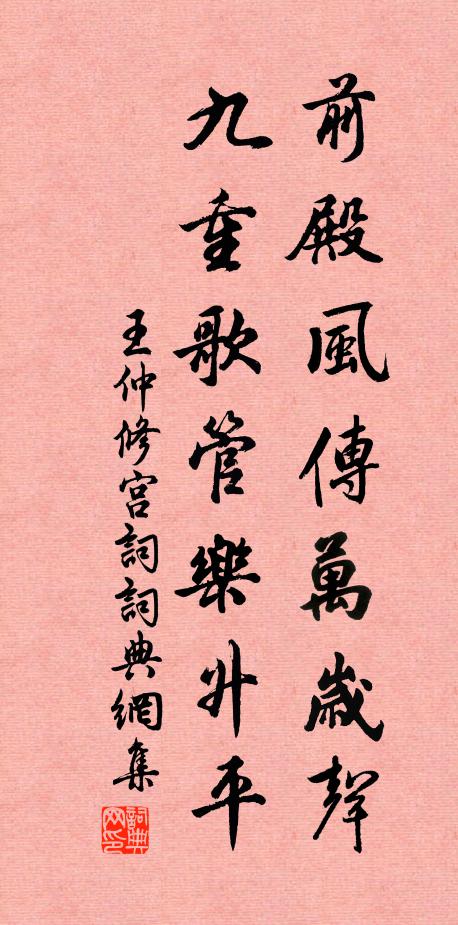 前殿風傳萬歲聲
九重歌管樂升平
王仲修宫詞詞典網集
詞典网印